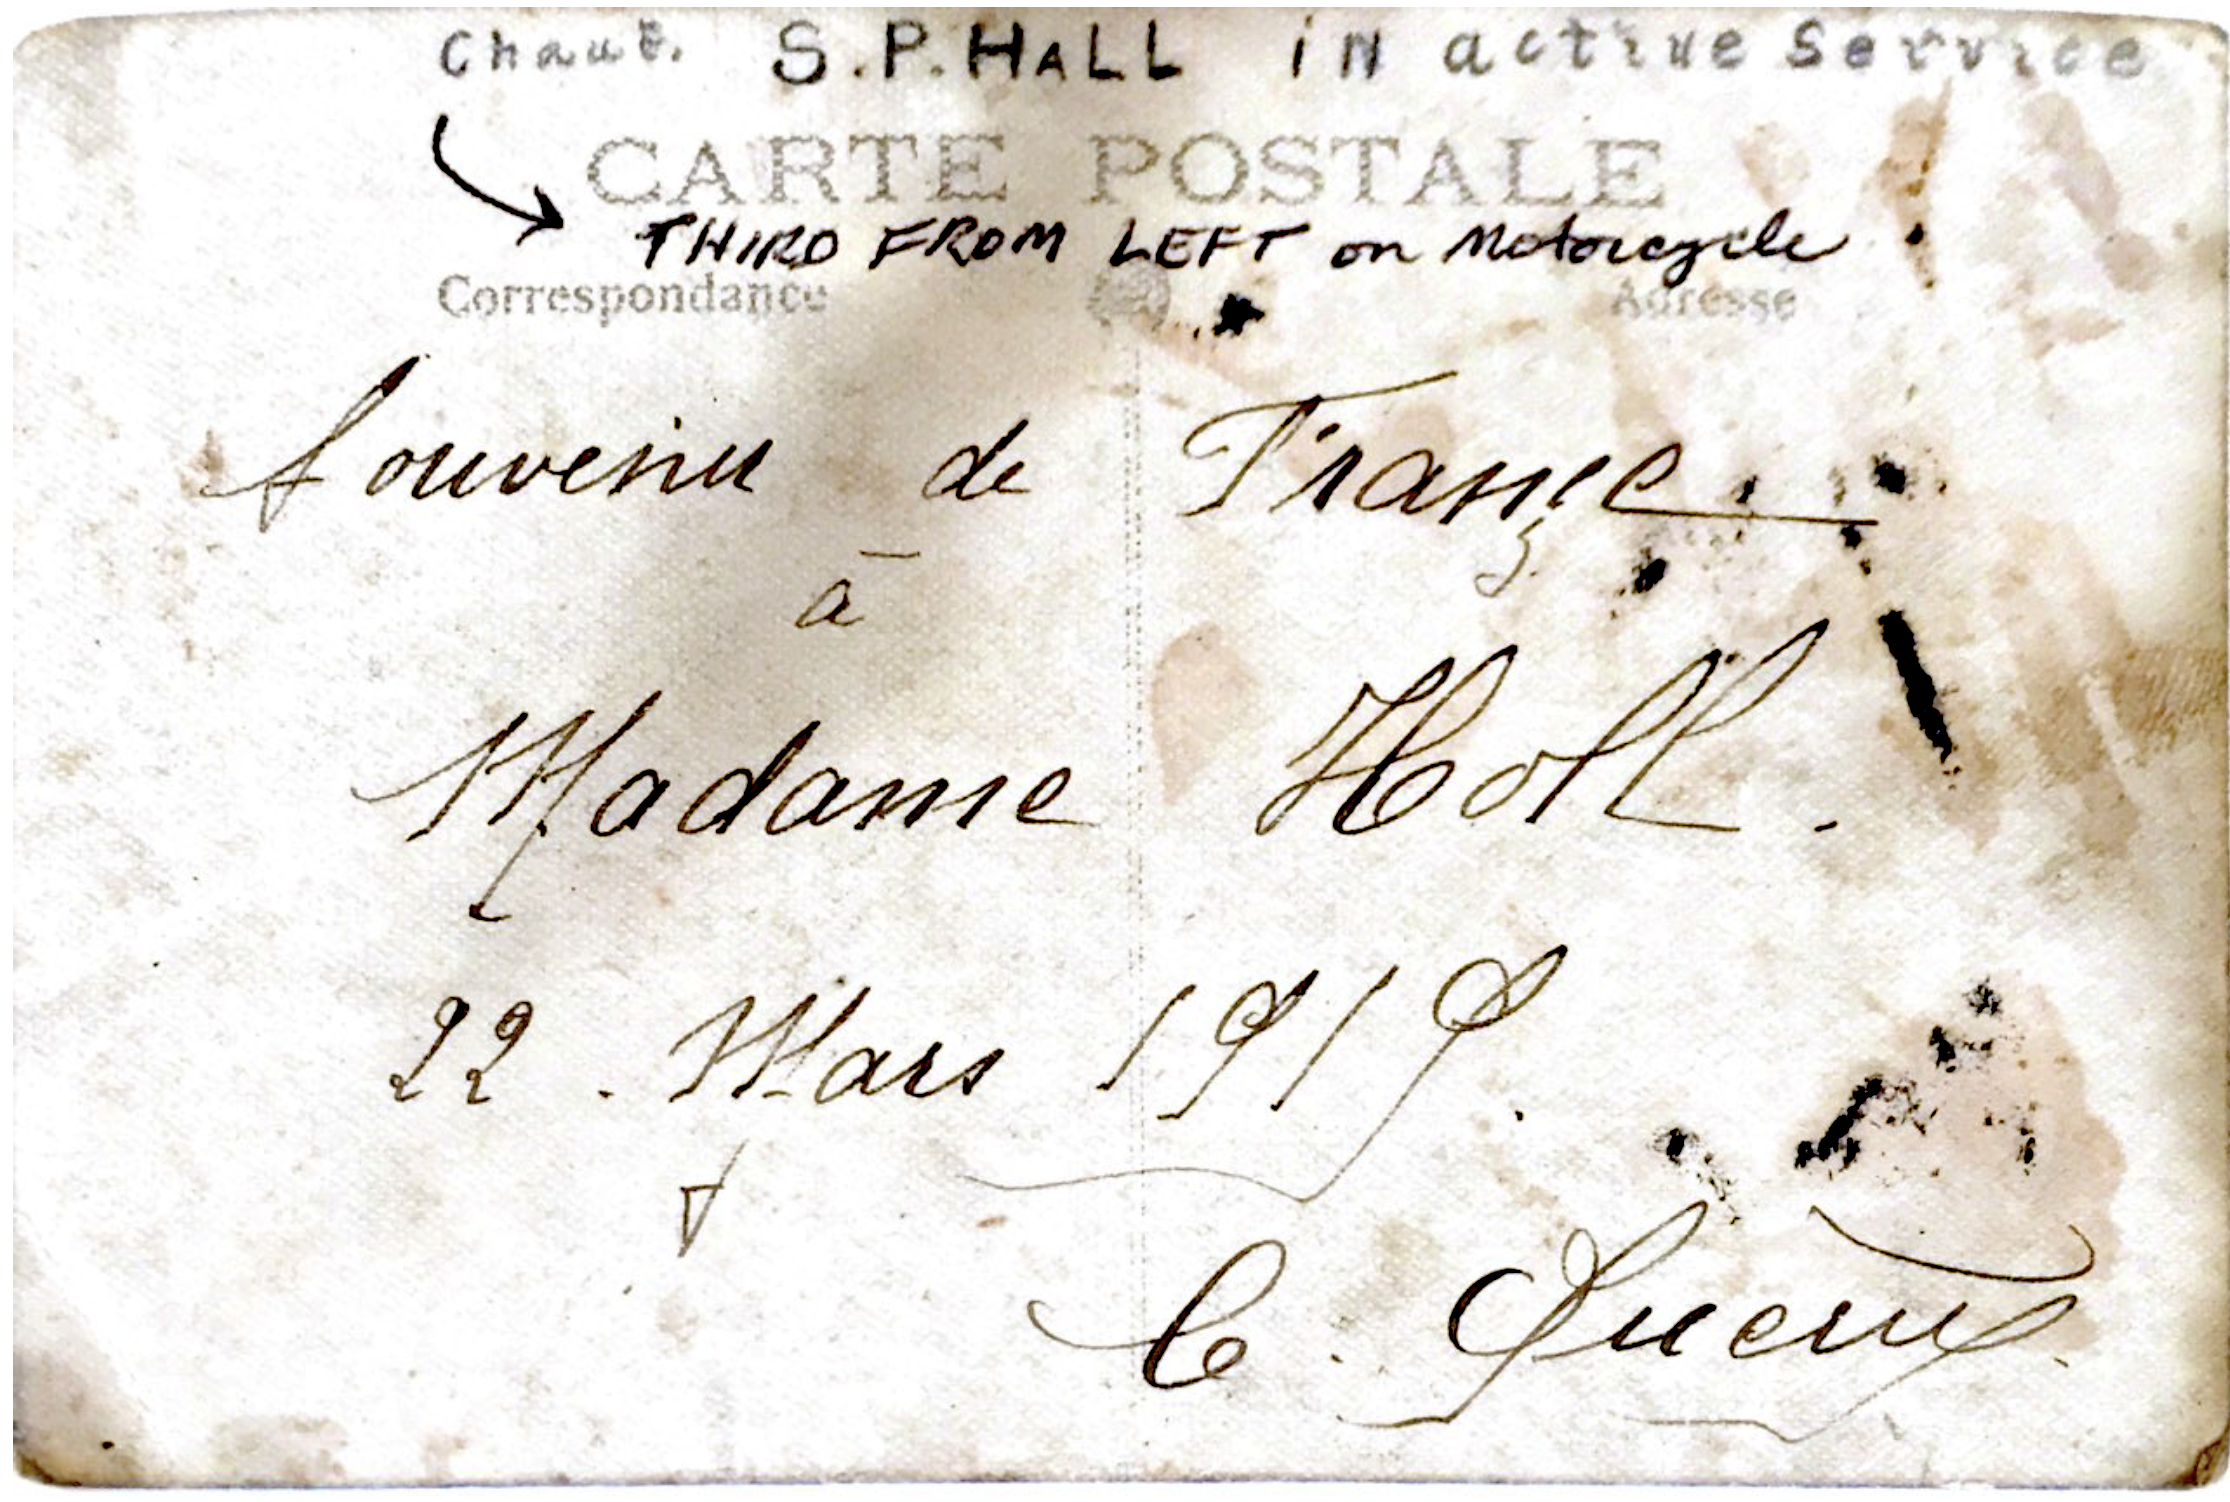 Chauf. S.P. HALL iN active Service
CARTE POSTALE
THIRD FROM LEFT on Motorcycle
Correspondance Adresse
Souvenir de França
à
Madame Holl.
22. Mars 1919.
C.